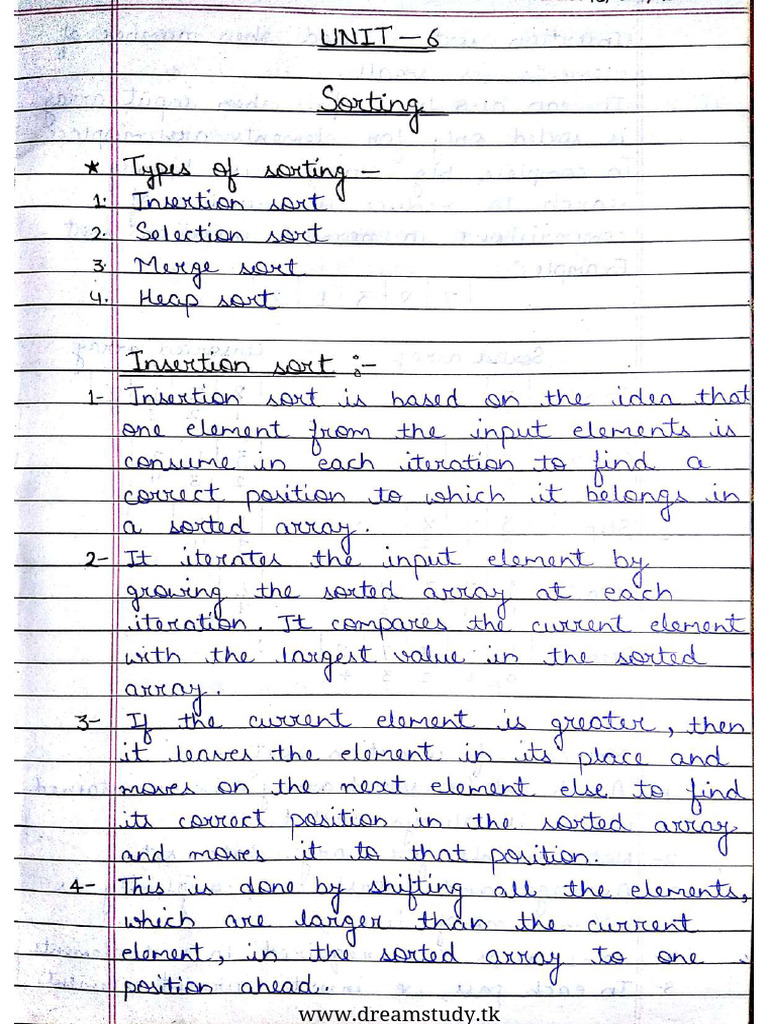 UNIT - 6
Sorting
★ Types of sorting -
1. Insertion sort
2. Selection sort
3. Merge sort
4. Heap sort
Insertion sort :-
1- Insertion sort is based on the idea that
one element from the input elements is
consume in each iteration to find a
correct position to which it belongs in
a sorted array.
2- It iterates the input element by
growing the sorted array at each
iteration. It compares the current element
with the largest value in the sorted
array.
3- If the current element is greater, then
it leaves the element in its place and
moves on the next element else to find
its correct position in the sorted array
and moves it to that position.
4- This is done by shifting all the elements,
which are larger than the current
element, in the sorted array to one
position ahead.
www.dreamstudy.tk